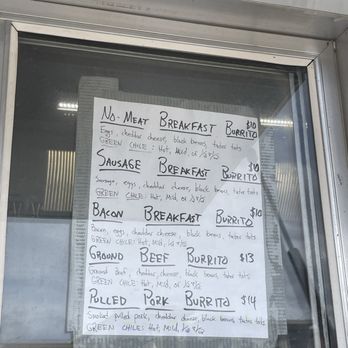 No-Meat Breakfast Burrito $10
Eggs, cheddar cheese, black beans, tator tots
GREEN CHILE: Hot, Mild, or 1/2 & 1/2
Sausage Breakfast Burrito $10
Sausage, eggs, cheddar cheese, black beans, tator tots
GREEN CHILE: Hot, Mild, or 1/2 & 1/2
Bacon Breakfast Burrito $10
Bacon, eggs, cheddar cheese, black beans, tator tots
GREEN CHILE: Hot, Mild, 1/2 & 1/2
Ground Beef Burrito $13
Ground Beef, cheddar cheese, black beans, tator tots
GREEN CHILE: Hot, Mild, or 1/2 & 1/2
Pulled Pork Burrito $14
Smoked pulled pork, cheddar cheese, black beans, tator tots
GREEN CHILE: Hot, Mild, 1/2 & 1/2